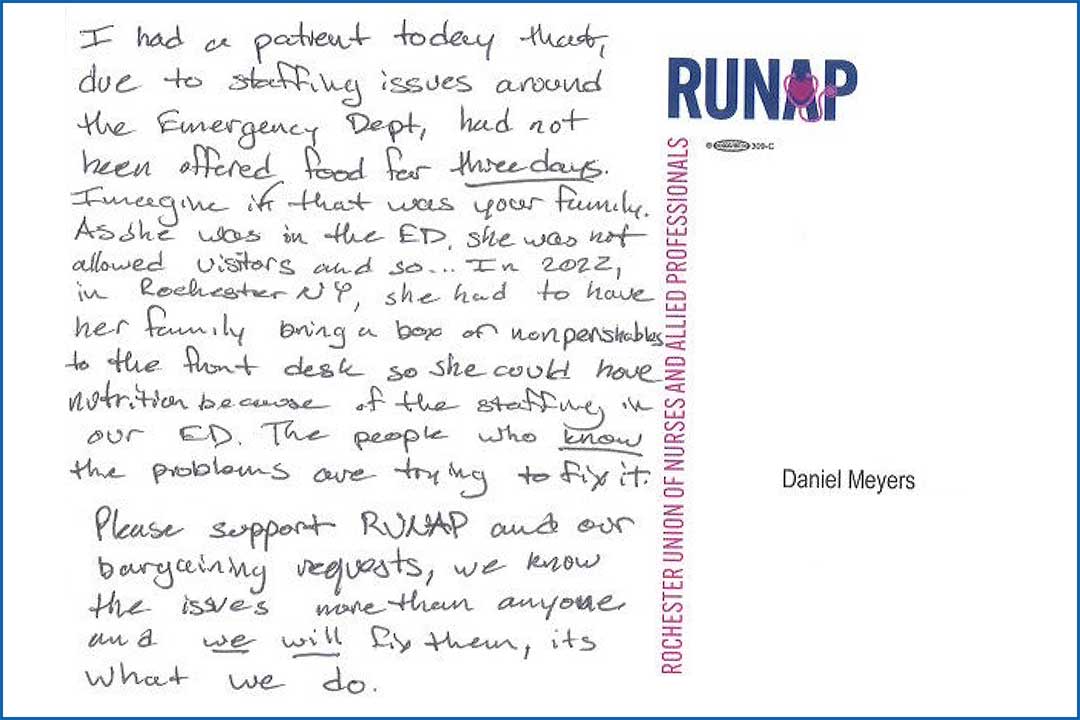 I had a patient today that,
due to staffing issues around
the Emergency Dept, had not
been offered food for three days.
Imagine if that was your family.
As she was in the ED, she was not
allowed visitors and so... In 2022,
in Rochester NY, she had to have
her family bring a box of nonperishables
to the front desk so she could have
nutrition because of the staffing in
our ED. The people who know
the problems are trying to fix it.
Please support RUNAP and our
bargaining requests, we know
the issues more than anyone
and we will fix them, its
what we do.
RUNAP
309-C
ROCHESTER UNION OF NURSES AND ALLIED PROFESSIONALS
Daniel Meyers